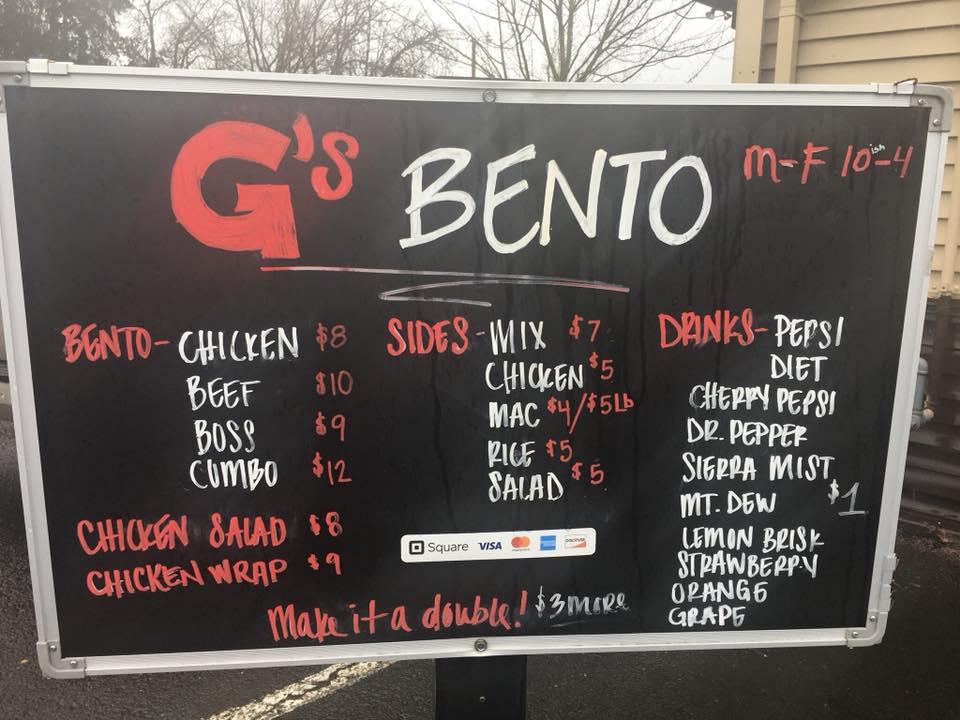 G's BENTO
M-F 10ish-4
BENTO- CHICKEN $8
BEEF $10
BOSS $9
CUMBO $12
CHICKEN SALAD $8
CHICKEN WRAP $9
SIDES- MIX $7
CHICKEN $5
MAC $4/$5Lb
RICE $5
SALAD $5
Square VISA mastercard AMERICAN EXPRESS DISCOVER
DRINKS- PEPSI
DIET
CHERRY PEPSI
DR. PEPPER
SIERRA MIST
MT. DEW $1
LEMON BRISK
STRAWBERRY
ORANGE
GRAPE
Make it a double! $3 more